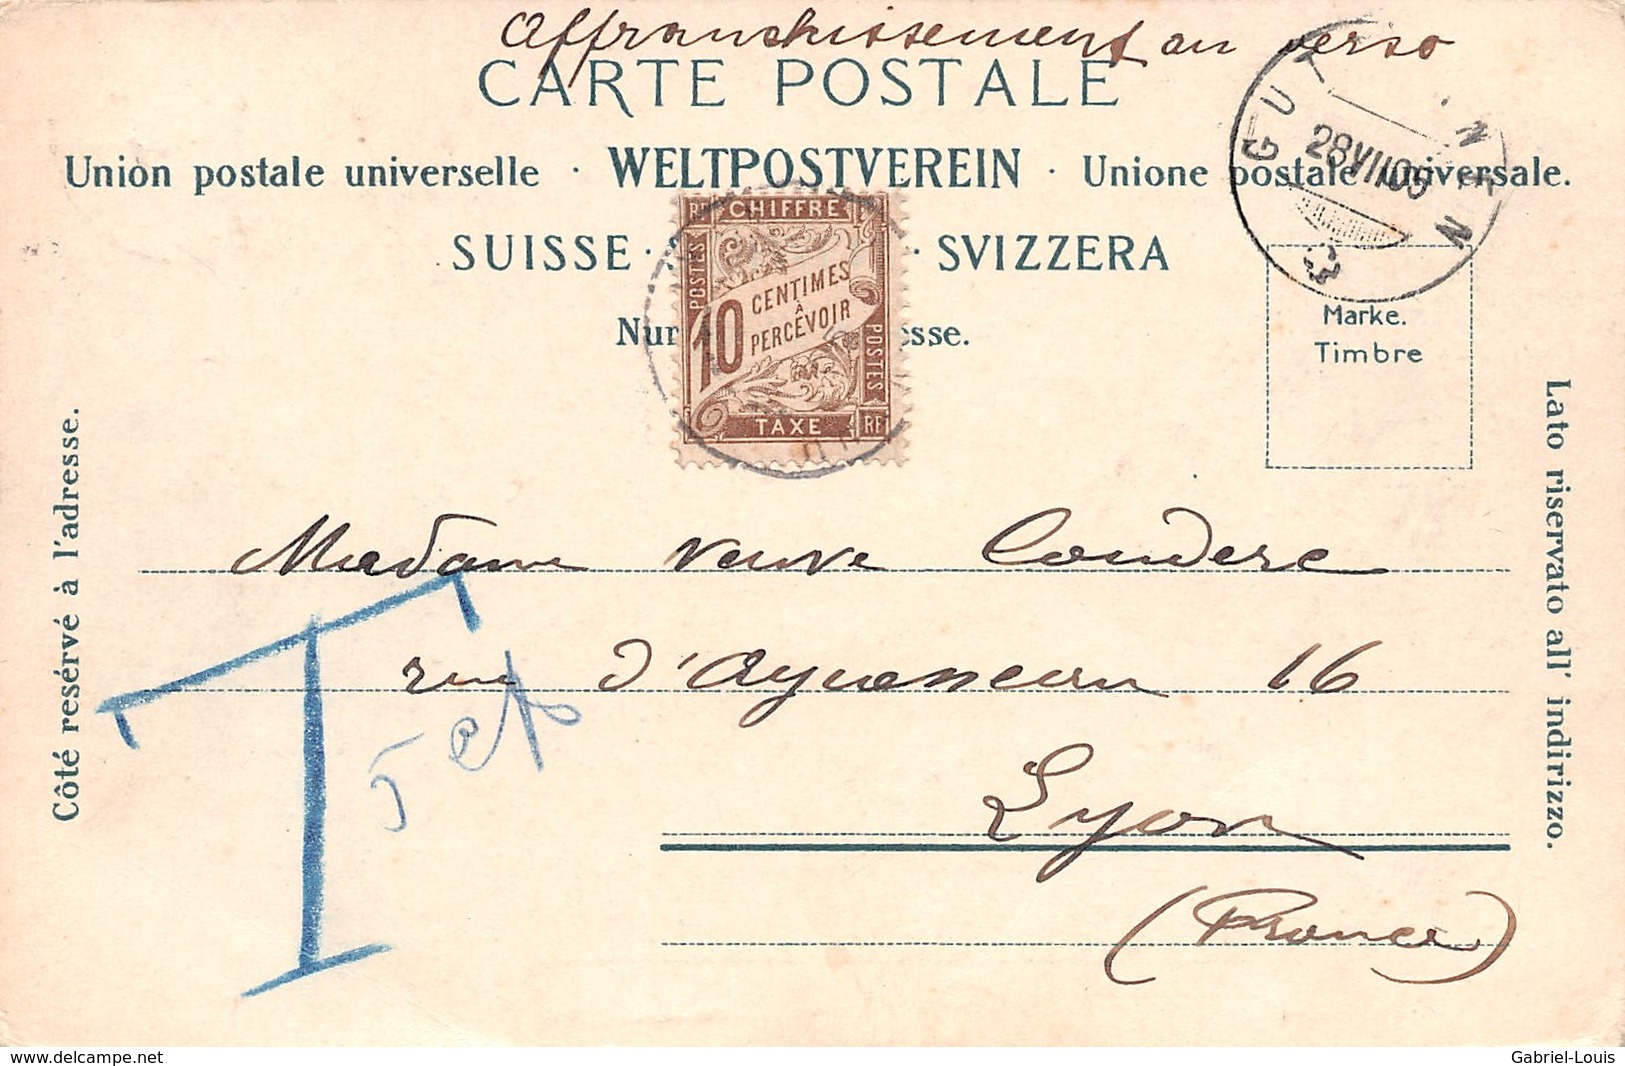 Affranchissement au verso
CARTE POSTALE
Union postale universelle · WELTPOSTVEREIN · Unione postale universale.
SUISSE · · SVIZZERA
Nur esse.
GUTTANNEN
28 VII 05
RF CHIFFRE
POSTES
10 CENTIMES
À
PERCEVOIR
POSTES
TAXE RF
Marke.
Timbre
Côté resérvé à l'adresse.
Lato riservato all' indirizzo.
Madame veuve Couderc
rue d'Aguesseau 16
Lyon
(France)
T
5
delcampe.net
Gabriel-Louis